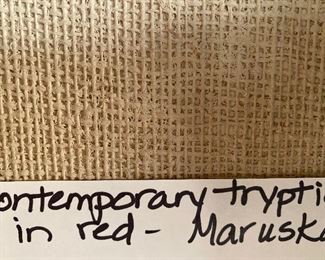 ontemporary trypti
in red - Maruska